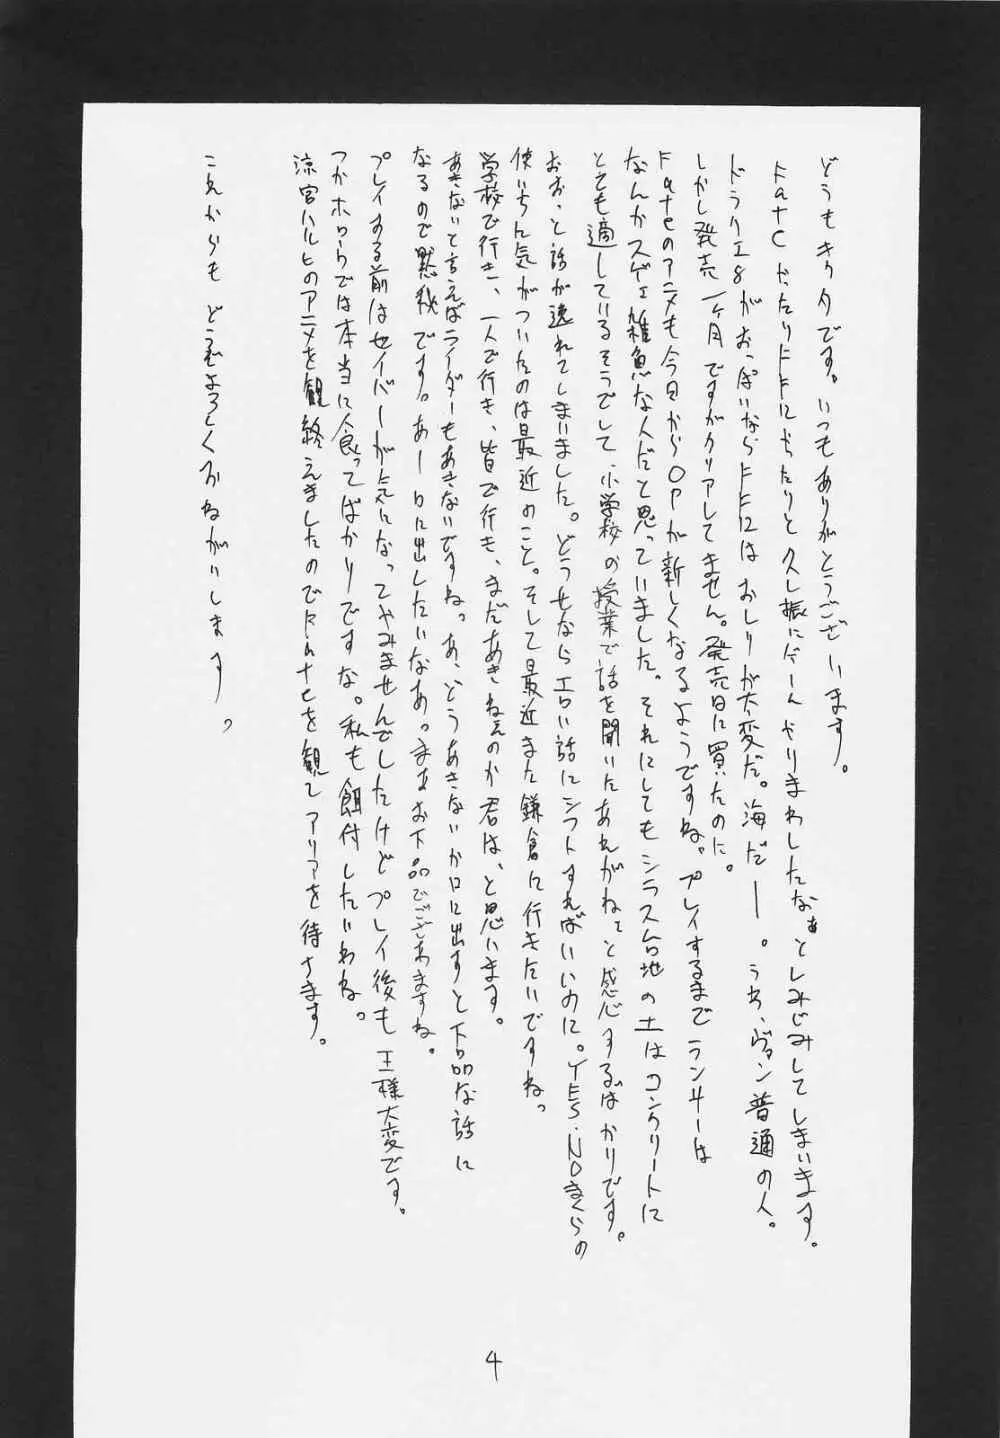 どうもキクタです。いつもありがとうございます。
Fateだったり FF12だったりと久し振にゲームやりまわしたなぁとしみじみしてしまいます。
ドラクエ8がおっぱいならFF12はおしりが大変だ。海だー。うち、ヴァン普通の人。
しかし発売一ヶ月ですがクリアしてません。発売日に買ったのに。
Fateのアニメも今日からOPが新しくなるようですね。プレイするまでランサーは
なんかスゲェ雑魚な人だと思っていました。それにしてもシラス台地の土はコンクリートに
とても適しているそうでして小学校の授業で話を聞いたあれがねぇと感心するばかりです。
おおっと話が逸れてしまいました。どうせならエロい話にシフトすればいいのに。YES・NOまくらの
使いちに気がついたのは最近のこと。そして最近また鎌倉に行きたいですねっ
学校で行き、一人で行き、皆で行き、まだあきねぇのか君は、と思います。
あきないと言えばライダーもあきないですねっ あ、どうあきないか口に出すと下品な話に
なるので黙秘です。あー口に出したいなあっ まぁお下品でございますね。
プレイする前はセイバーが気になってやみませんでしたけどプレイ後も王様大変です。
つかホロウでは本当に食ってばかりですな。私も餌付したいわね。
涼宮ハルヒのアニメを観終えましたのでFateを観てアリアを待ちます。
これからも どうぞよろしくおねがいします。
4